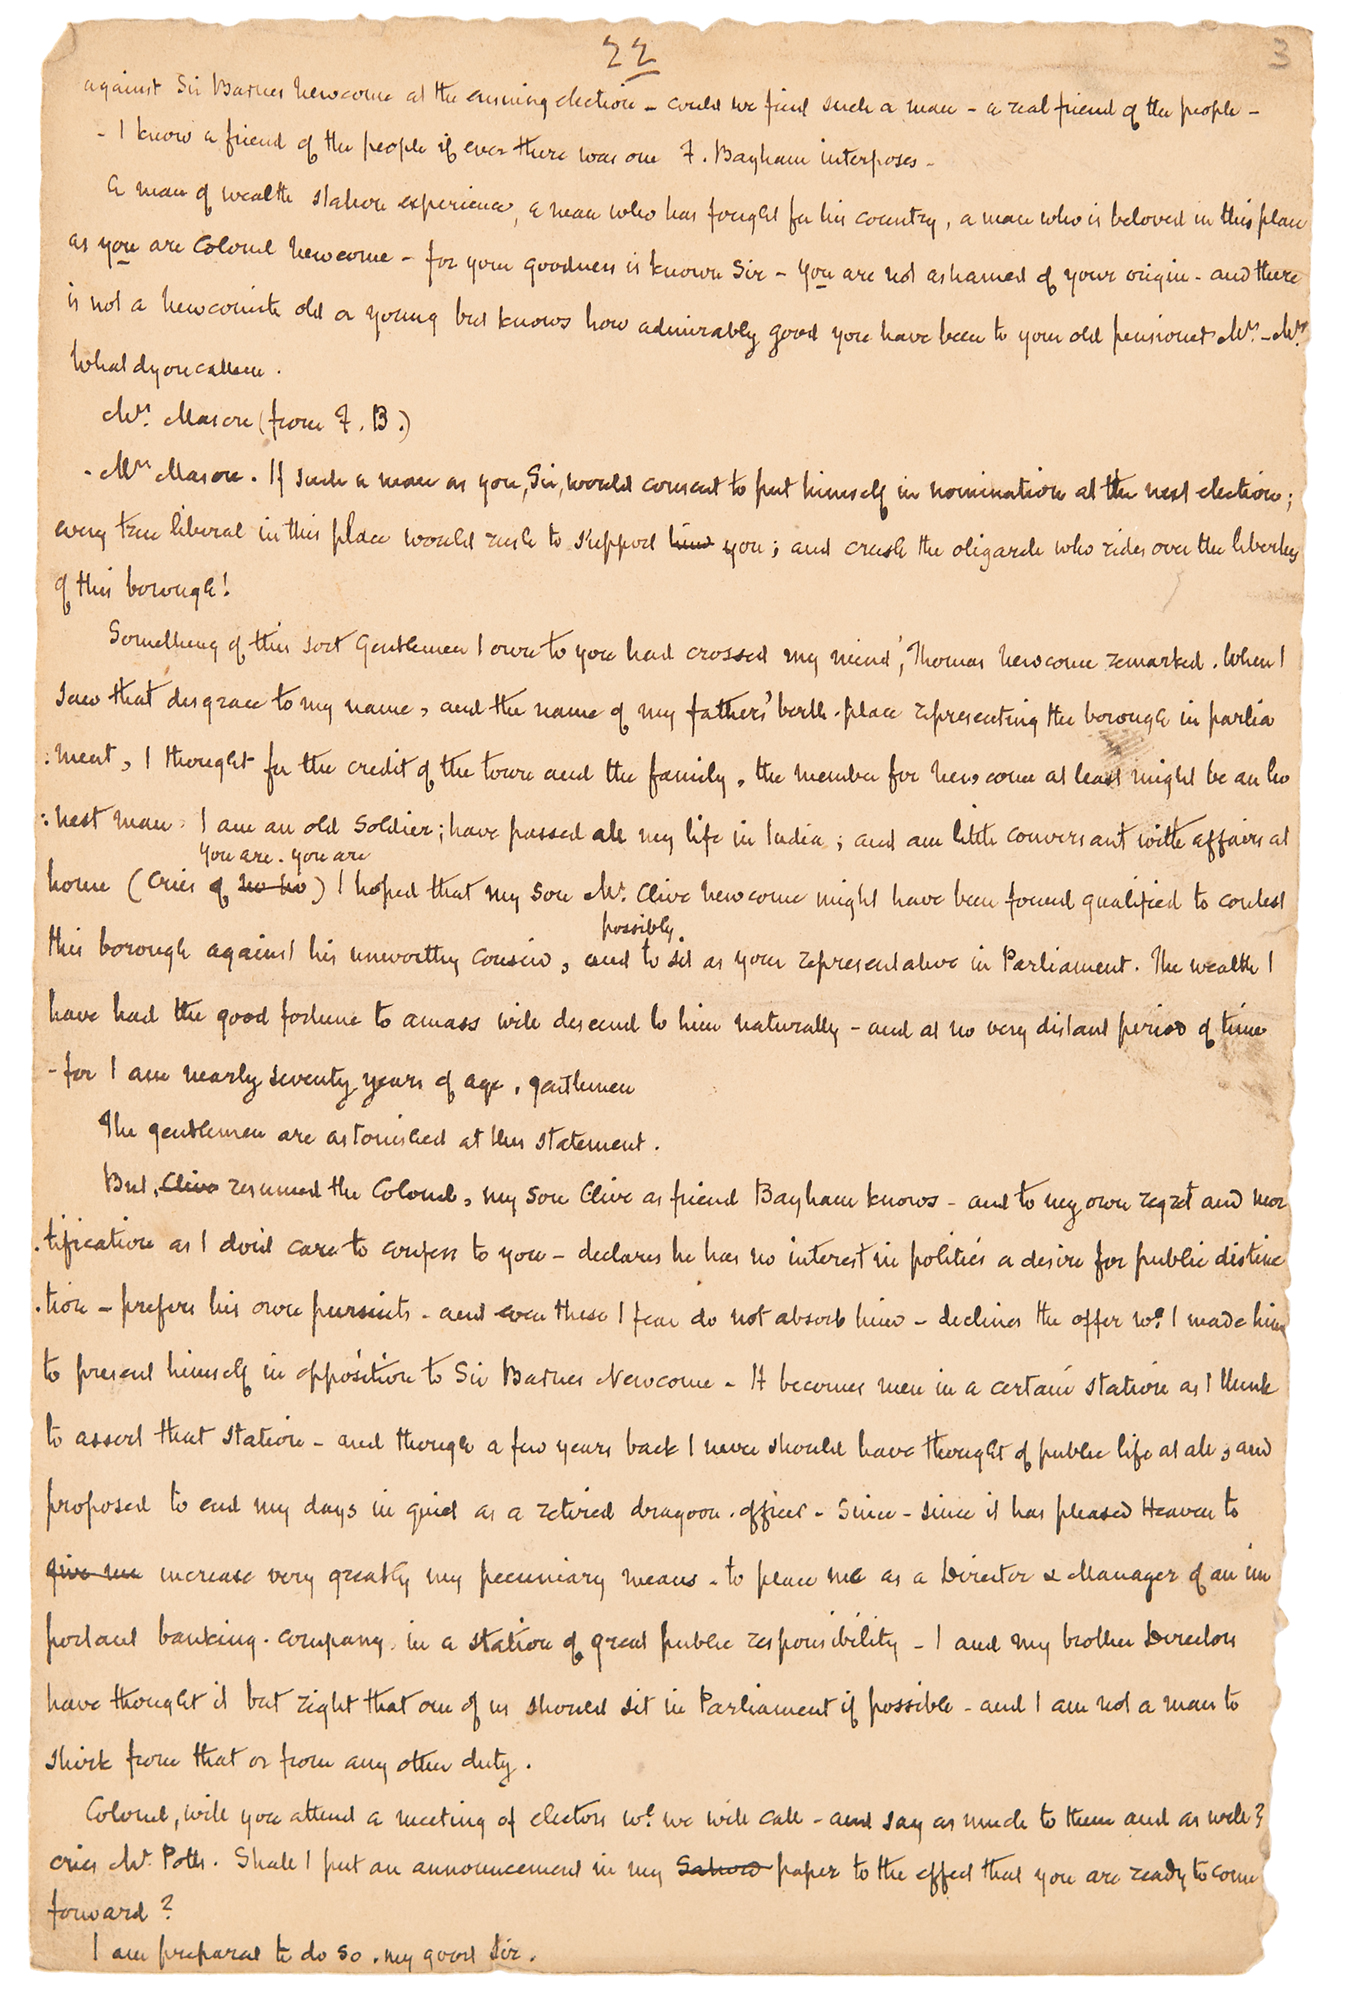 22
3
against Sir Barnes Newcome at the ensuing election – could we find such a man – a real friend of the people –
- I know a friend of the people if ever there was one F. Bayham interposes –
A man of wealth station experience, a man who has fought for his country, a man who is beloved in this place
as you are Colonel Newcome – for your goodness is known Sir – You are not ashamed of your origin – and there
is not a Newcomite old or young but knows how admirably good you have been to your old pensioner Mrs. – Mrs.
Whatdyoucallem.
Mrs. Mason (from F. B.)
- Mrs Mason. If such a man as you, Sir, would consent to put himself in nomination at the next election;
every true liberal in this place would rush to support him you; and crush the oligarch who rides over the liberties
of this borough!
Something of this sort Gentlemen I own to you had crossed my mind, Thomas Newcome remarked. When I
saw that disgrace to my name, and the name of my fathers' birth-place representing the borough in parlia
:ment, I thought for the credit of the town and the family, the member for Newcome at least might be an ho
:nest man. I am an old Soldier; have passed all my life in India; and am little conversant with affairs at
you are. you are
home (Cries of no no) I hoped that my son Mr. Clive Newcome might have been found qualified to contest
possibly
this borough against his unworthy cousin, and to sit as your representative in Parliament. The wealth I
have had the good fortune to amass will descend to him naturally – and at no very distant period of time
- for I am nearly seventy years of age, gentlemen
The gentlemen are astonished at this statement.
But, Clive resumed the Colonel, my son Clive as friend Bayham knows – and to my own regret and mor
.tification as I don't care to confess to you – declares he has no interest in politics a desire for public distinc
.tion – prefers his own pursuits – and even these I fear do not absorb him – declines the offer wh. I made him
to present himself in opposition to Sir Barnes Newcome – It becomes men in a certain station as I think
to assert that station – and though a few years back I never should have thought of public life at all, and
proposed to end my days in quiet as a retired dragoon-officer – Since – since it has pleased Heaven to
give me increase very greatly my pecuniary means – to place me as a Director & Manager of an im
portant banking-company, in a station of great public responsibility – I and my brother Directors
have thought it but right that one of us should sit in Parliament if possible – and I am not a man to
shirk from that or from any other duty.
Colonel, will you attend a meeting of electors wh. we will call – and say as much to them and as well?
cries Mr. Potts. Shall I put an announcement in my paper to the effect that you are ready to come
forward?
I am prepared to do so, my good Sir.